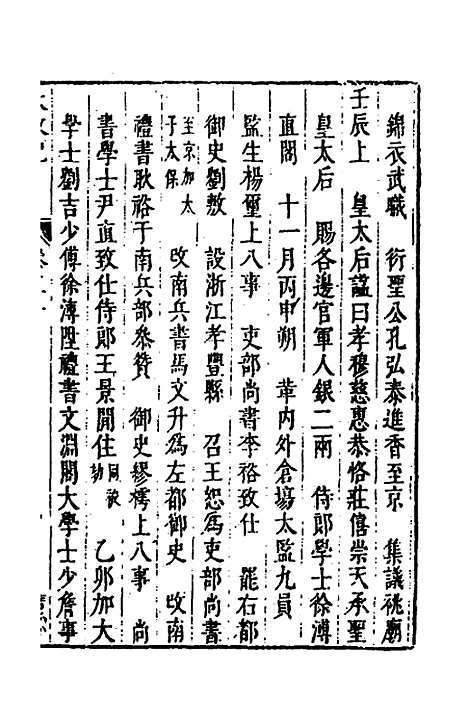 錦衣武職　衍聖公孔弘泰進香至京　集議祧廟
壬辰上　皇太后諡曰孝穆慈惠恭恪莊僖崇天承聖
皇太后　賜各邊官軍人銀二兩　侍郎學士徐溥
直閣　十一月丙申朔　革内外倉塲太監九員
監生楊璽上八事　吏部尚書李裕致仕　罷右都
御史劉敷　設浙江孝豐縣　召王恕爲吏部尚書
至京加太
子太保　改南兵書馬文升爲左都御史　改南
禮書耿裕于南兵部叅贊　御史繆樗上八事　尚
書學士尹直致仕侍郎王景閒住同被
劾　乙卯加大
學士劉吉少傅徐溥陞禮書文淵閣大學士少詹事